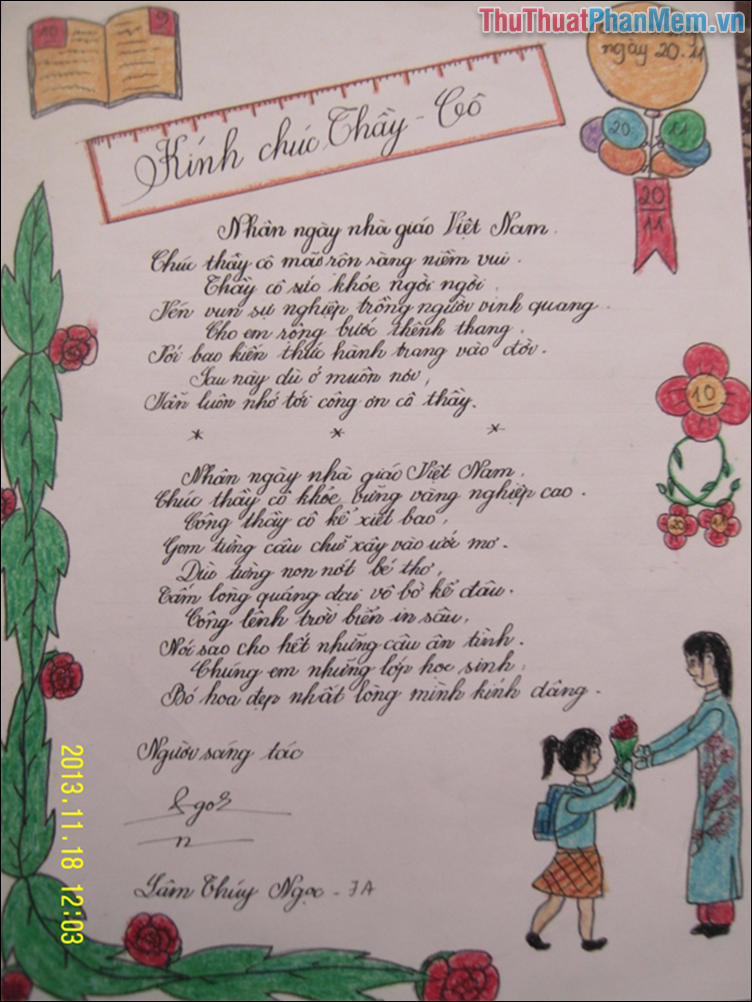 ThuThuatPhanMem.vn
10 9
ngày 20.11
20 11
20
11
Kính chúc Thầy - Cô
Nhân ngày nhà giáo Việt Nam.
Chúc thầy cô mãi rôn ràng niềm vui.
Thầy cô sức khỏe ngời ngời,
Vén vun sự nghiệp trồng người vinh quang.
Cho em rộng bước thênh thang,
Với bao kiến thức hành trang vào đời.
Sau này dù ở muôn nơi,
Vẫn luôn nhớ tới công ơn cô thầy.
* * *
10
Nhân ngày nhà giáo Việt Nam.
Chúc thầy cô khỏe vững vàng nghiệp cao.
Công thầy cô kể xiết bao,
Gom từng câu chữ xây vào ước mơ.
Dìu từng non nớt bé thơ,
Tấm lòng quảng đại vô bờ kể đâu.
Công lênh trời biển in sâu,
Nói sao cho hết những câu ân tình.
Chúng em những lớp học sinh,
Bó hoa đẹp nhất lòng mình kính dâng.
Người sáng tác
Lâm Thúy Ngọc - 7A
2013.11.18 12:03